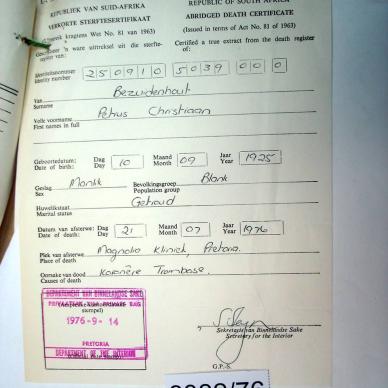 REPUBLIEK VAN SUID-AFRIKA
VERKORTE STERFTESERTIFIKAAT
(Uitgereik kragtens Wet No. 81 van 1963)
'n ware uittreksel uit die sterfte-
register van:
REPUBLIC OF SOUTH AFRICA
ABRIDGED DEATH CERTIFICATE
(Issued in terms of Act No. 81 of 1963)
Certified a true extract from the death register
of:
Identiteitsnommer
Identity number
250910 5039 00 0
Van
Surname
Bezuidenhout
Volle voorname
First names in full
Petrus Christiaan
Geboortedatum: Dag 10 Maand 09 Jaar 1925
Date of birth: Day Month Year
Geslag Manlik Bevolkingsgroep Blank
Sex Population group
Huwelikstaat Getroud
Marital status
Datum van afsterwe: Dag 21 Maand 07 Jaar 1976
Date of death: Day Month Year
Plek van afsterwe Magnolia Kliniek, Pretoria.
Place of death
Oorsake van dood Koronêre Trombose.
Causes of death
DEPARTEMENT VAN BINNELANDSE SAKE
PRIVAATSAK · PRIVATE BAG
stempel)
1976-9-14
PRETORIA
DEPARTMENT OF THE INTERIOR
Sekretaris van Binnelandse Sake
Secretary for the Interior
G.P.-S.